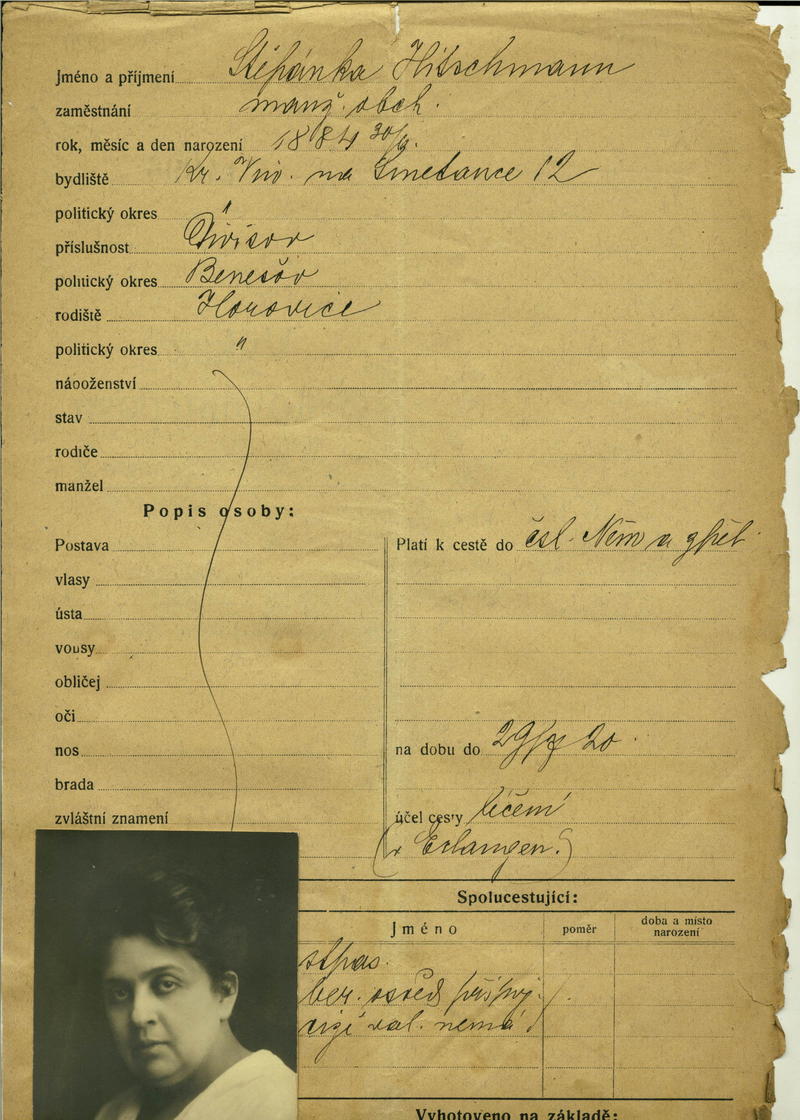 Jméno a příjmení Štěpánka Hitschmann
zaměstnání manž. obch.
rok, měsíc a den narození 1884 30/9.
bydliště Kr. Vin. na Smetance 12
politický okres "
příslušnost Divišov
politický okres Benešov
rodiště Hořovice
politický okres "
náooženství
stav
rodiče
manžel
Popis osoby:
Postava
vlasy
ústa
vousy
obličej
oči
nos
brada
zvláštní znamení
Platí k cestě do čsl. Něm a zpět
na dobu do 20
účel cesty léčení
(v Erlangen.)
Spolucestující:
Jméno poměr doba a místo narození
st. pas.
ber. osvěd
cizí val. nemá
Vyhotoveno na základě: